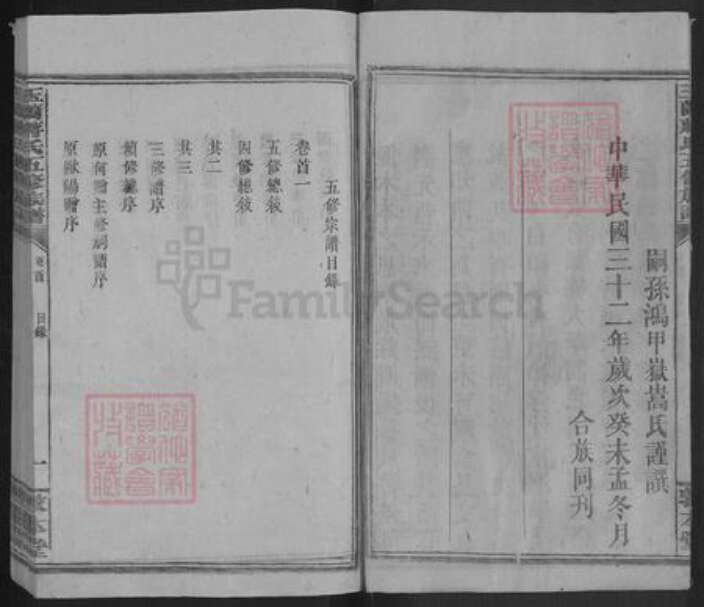 嗣孫鴻甲嶽嵩氏謹譔
中華民國三十二年歲次癸未孟冬月
合族同刊
五修宗譜目錄
卷首一
五修總敘
四修總敘
其二
其三
三修譜序
續修總序
原歐陽贈序
五修族譜
目錄
一
敦本堂
FamilySearch